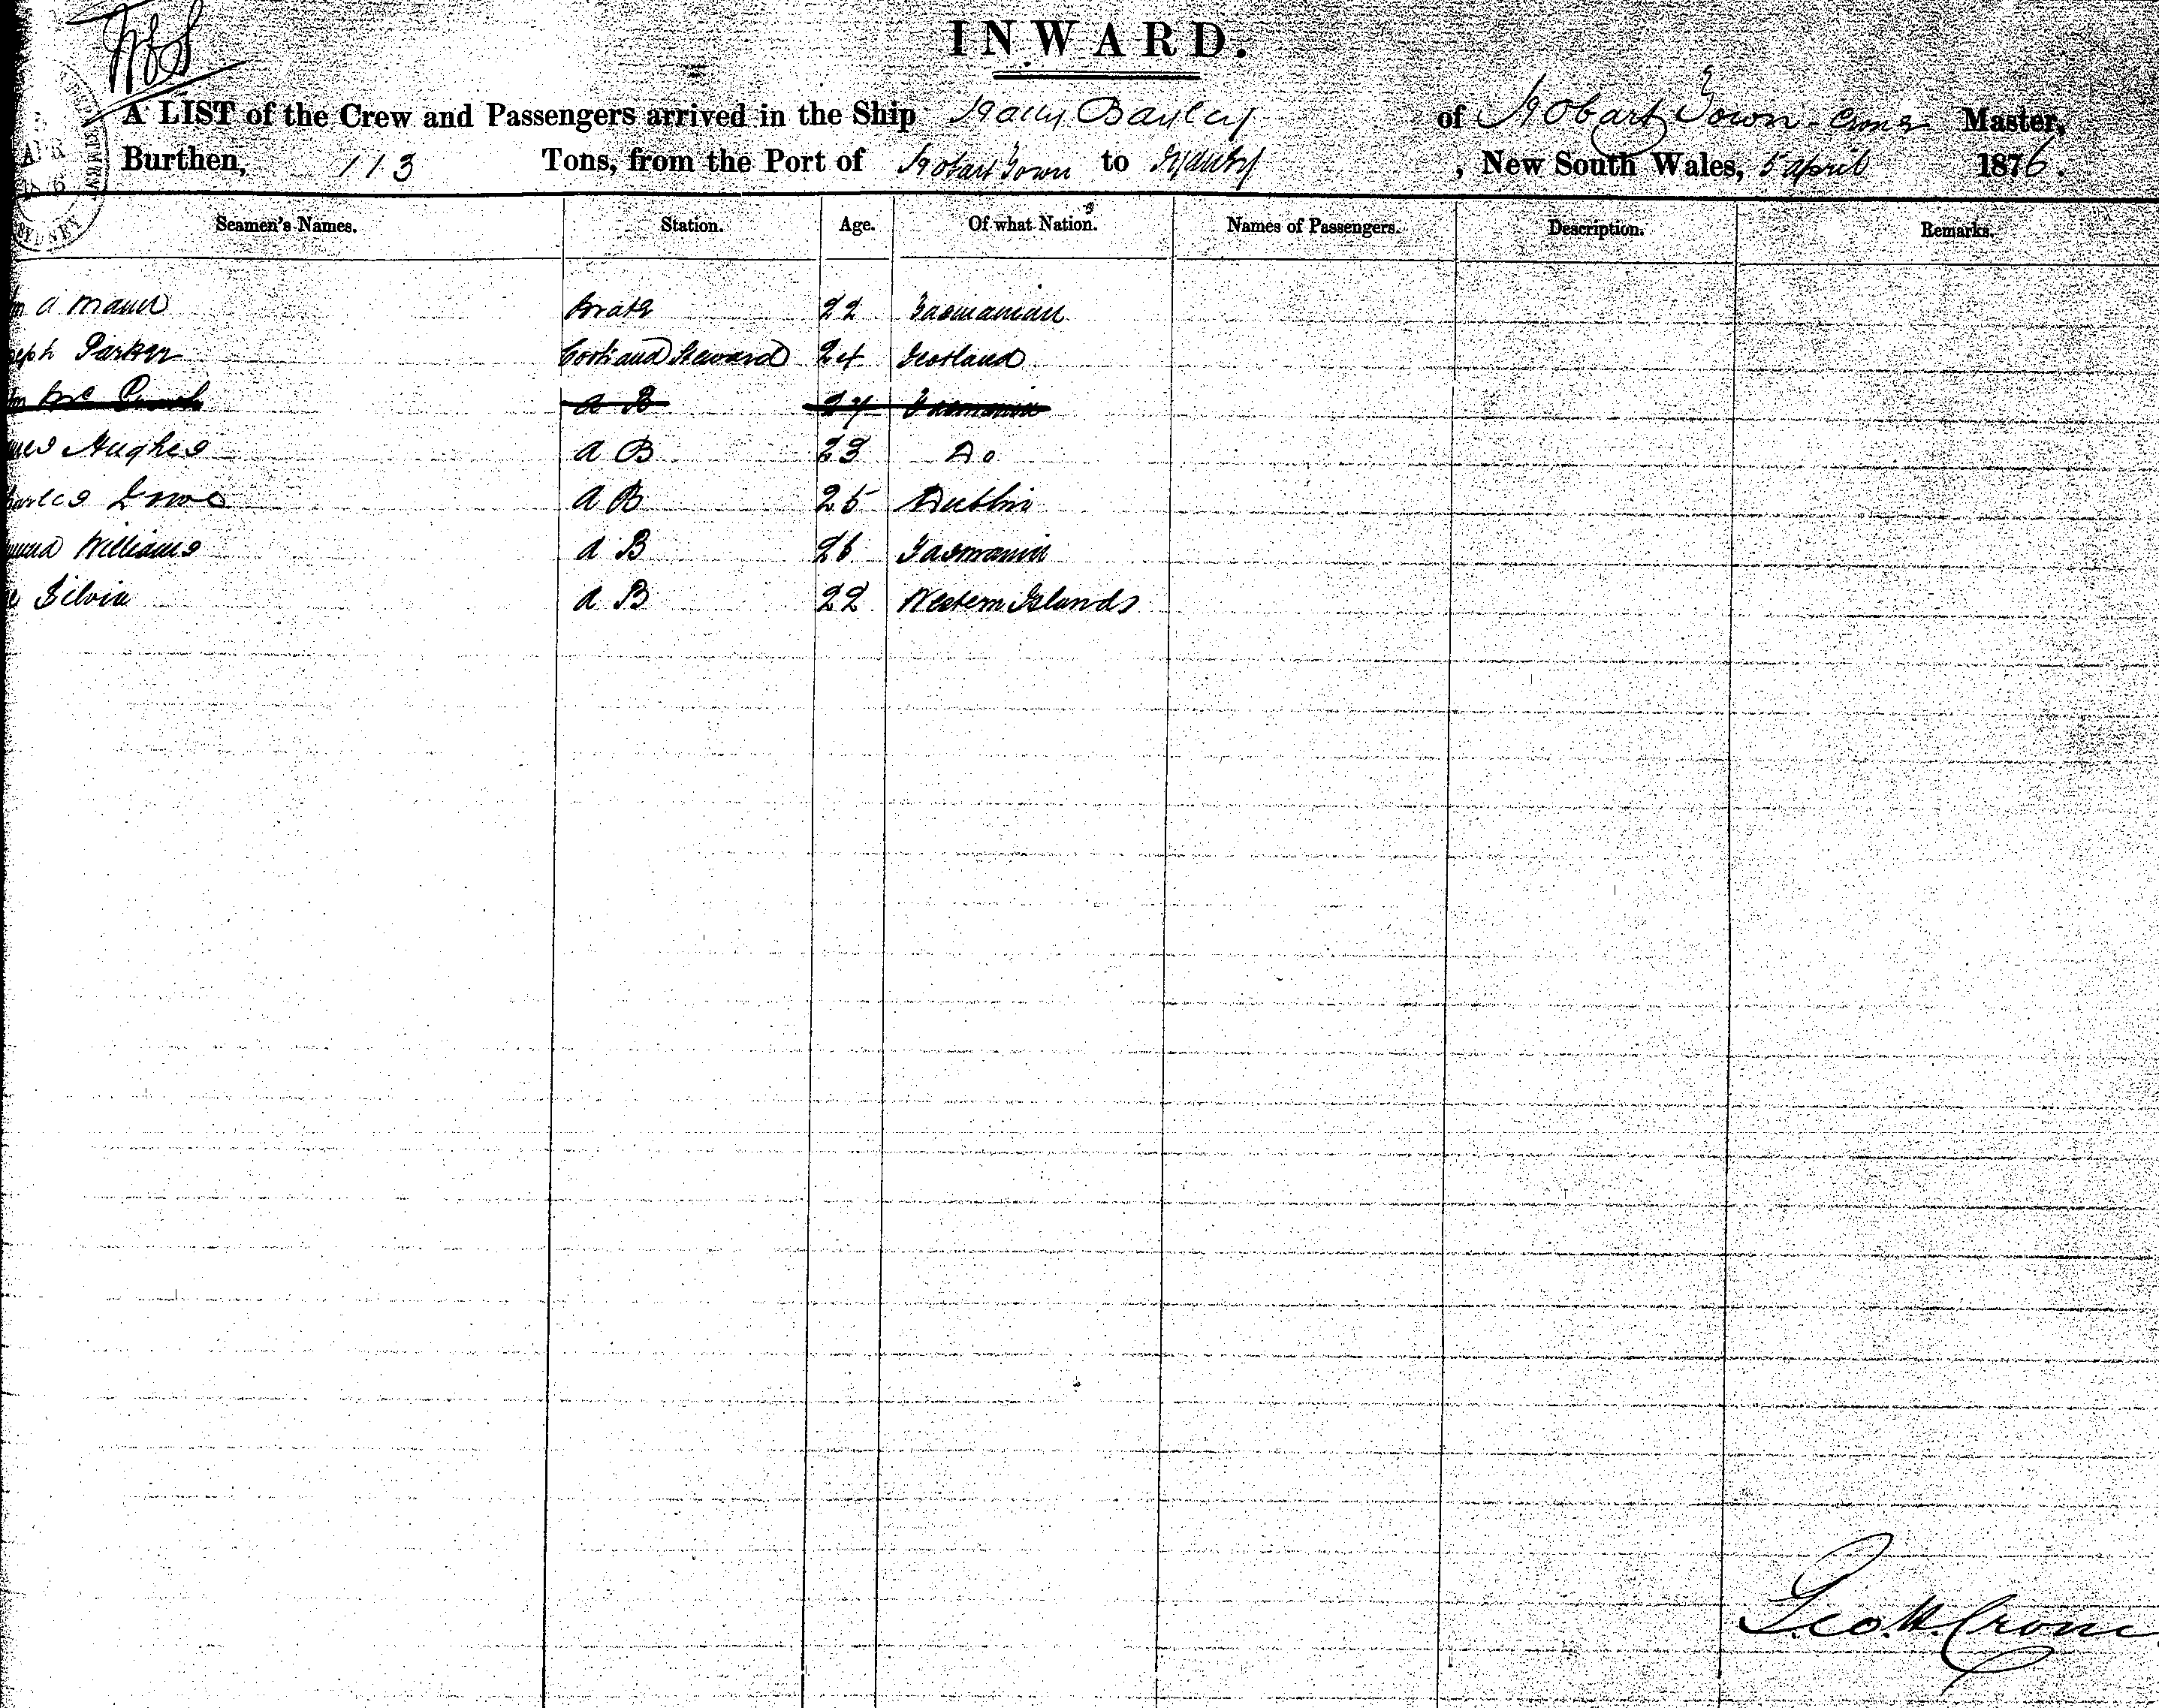 INWARD.
A LIST of the Crew and Passengers arrived in the Ship Harry Bayley of Hobart Town - Crone Master,
Burthen, 113 Tons, from the Port of Hobart Town to Sydney, New South Wales, 5 April 1876.
Seamen's Names. Station. Age. Of what Nation. Names of Passengers. Description. Remarks.
a Mate 22 Tasmanian
Parker Cook and Steward 24 Scotland
Mc A B 27 Tasmania
Hughes A B 23 Do
A B 25 Dublin
Williams A B 26 Tasmania
Silvia A B 22 Western Islands
Geo. H. Crone